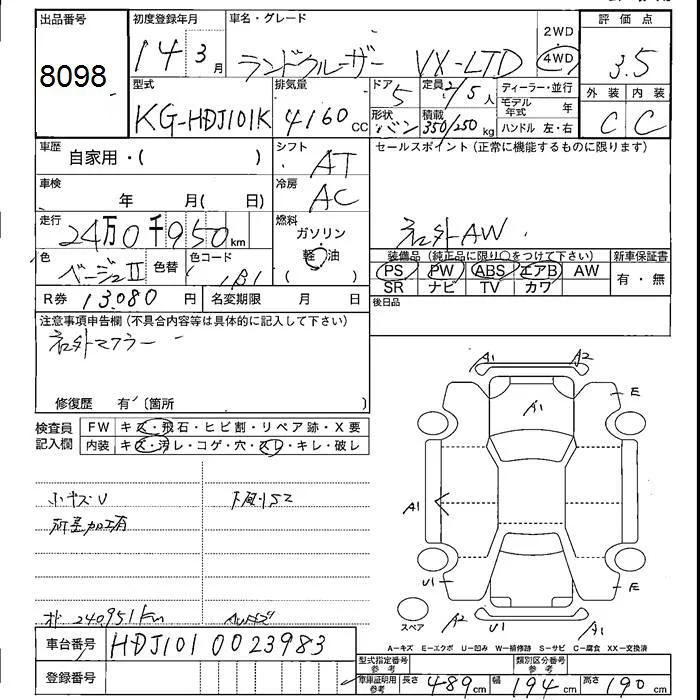 出品番号 初度登録年月 車名・グレード 2WD 評価点
8098 14 3月 ランドクルーザー VX-LTD 4WD 3.5
型式 排気量 ドア 5 定員 2/5人 ディーラー・並行 外装 内装
モデル年式 年
KG-HDJ101K 4160 CC 形状 バン 積載 350/250 kg ハンドル 左・右 C C
車歴 自家用・( ) シフト AT セールスポイント(正常に機能するものに限ります)
車検 年 月( 日) 冷房 AC
走行 24万0千950km 燃料 ガソリン 社外AW
色 ベージュII 色替 色コード 1B1 軽油 ( )
装備品(純正品に限り○をつけて下さい) 新車保証書
PS PW ABS エアB AW 有・無
SR ナビ TV カワ
R券 13080 円 名変期限 月 日 後日品
注意事項申告欄(不具合内容等は具体的に記入して下さい)
社外マフラー
修復歴 有(箇所 )
検査員記入欄 FW キズ・飛石・ヒビ割・リペア跡・X要
内装 キズ・汚レ・コゲ・穴・スレ・キレ・破レ
A1 A2
A1 E
A1
U1 E
小キズU 下廻りサビ
オド 240951km
スペア A2 U1 A1
A−キズ E−エクボ U−凹み W−補修跡 S−サビ C−腐食 XX−交換済
車台番号 HDJ101 0023983
型式指定番号 参考 類別区分番号 参考
登録番号 車庫証明用 参考 長さ 489cm 幅 194cm 高さ 190cm